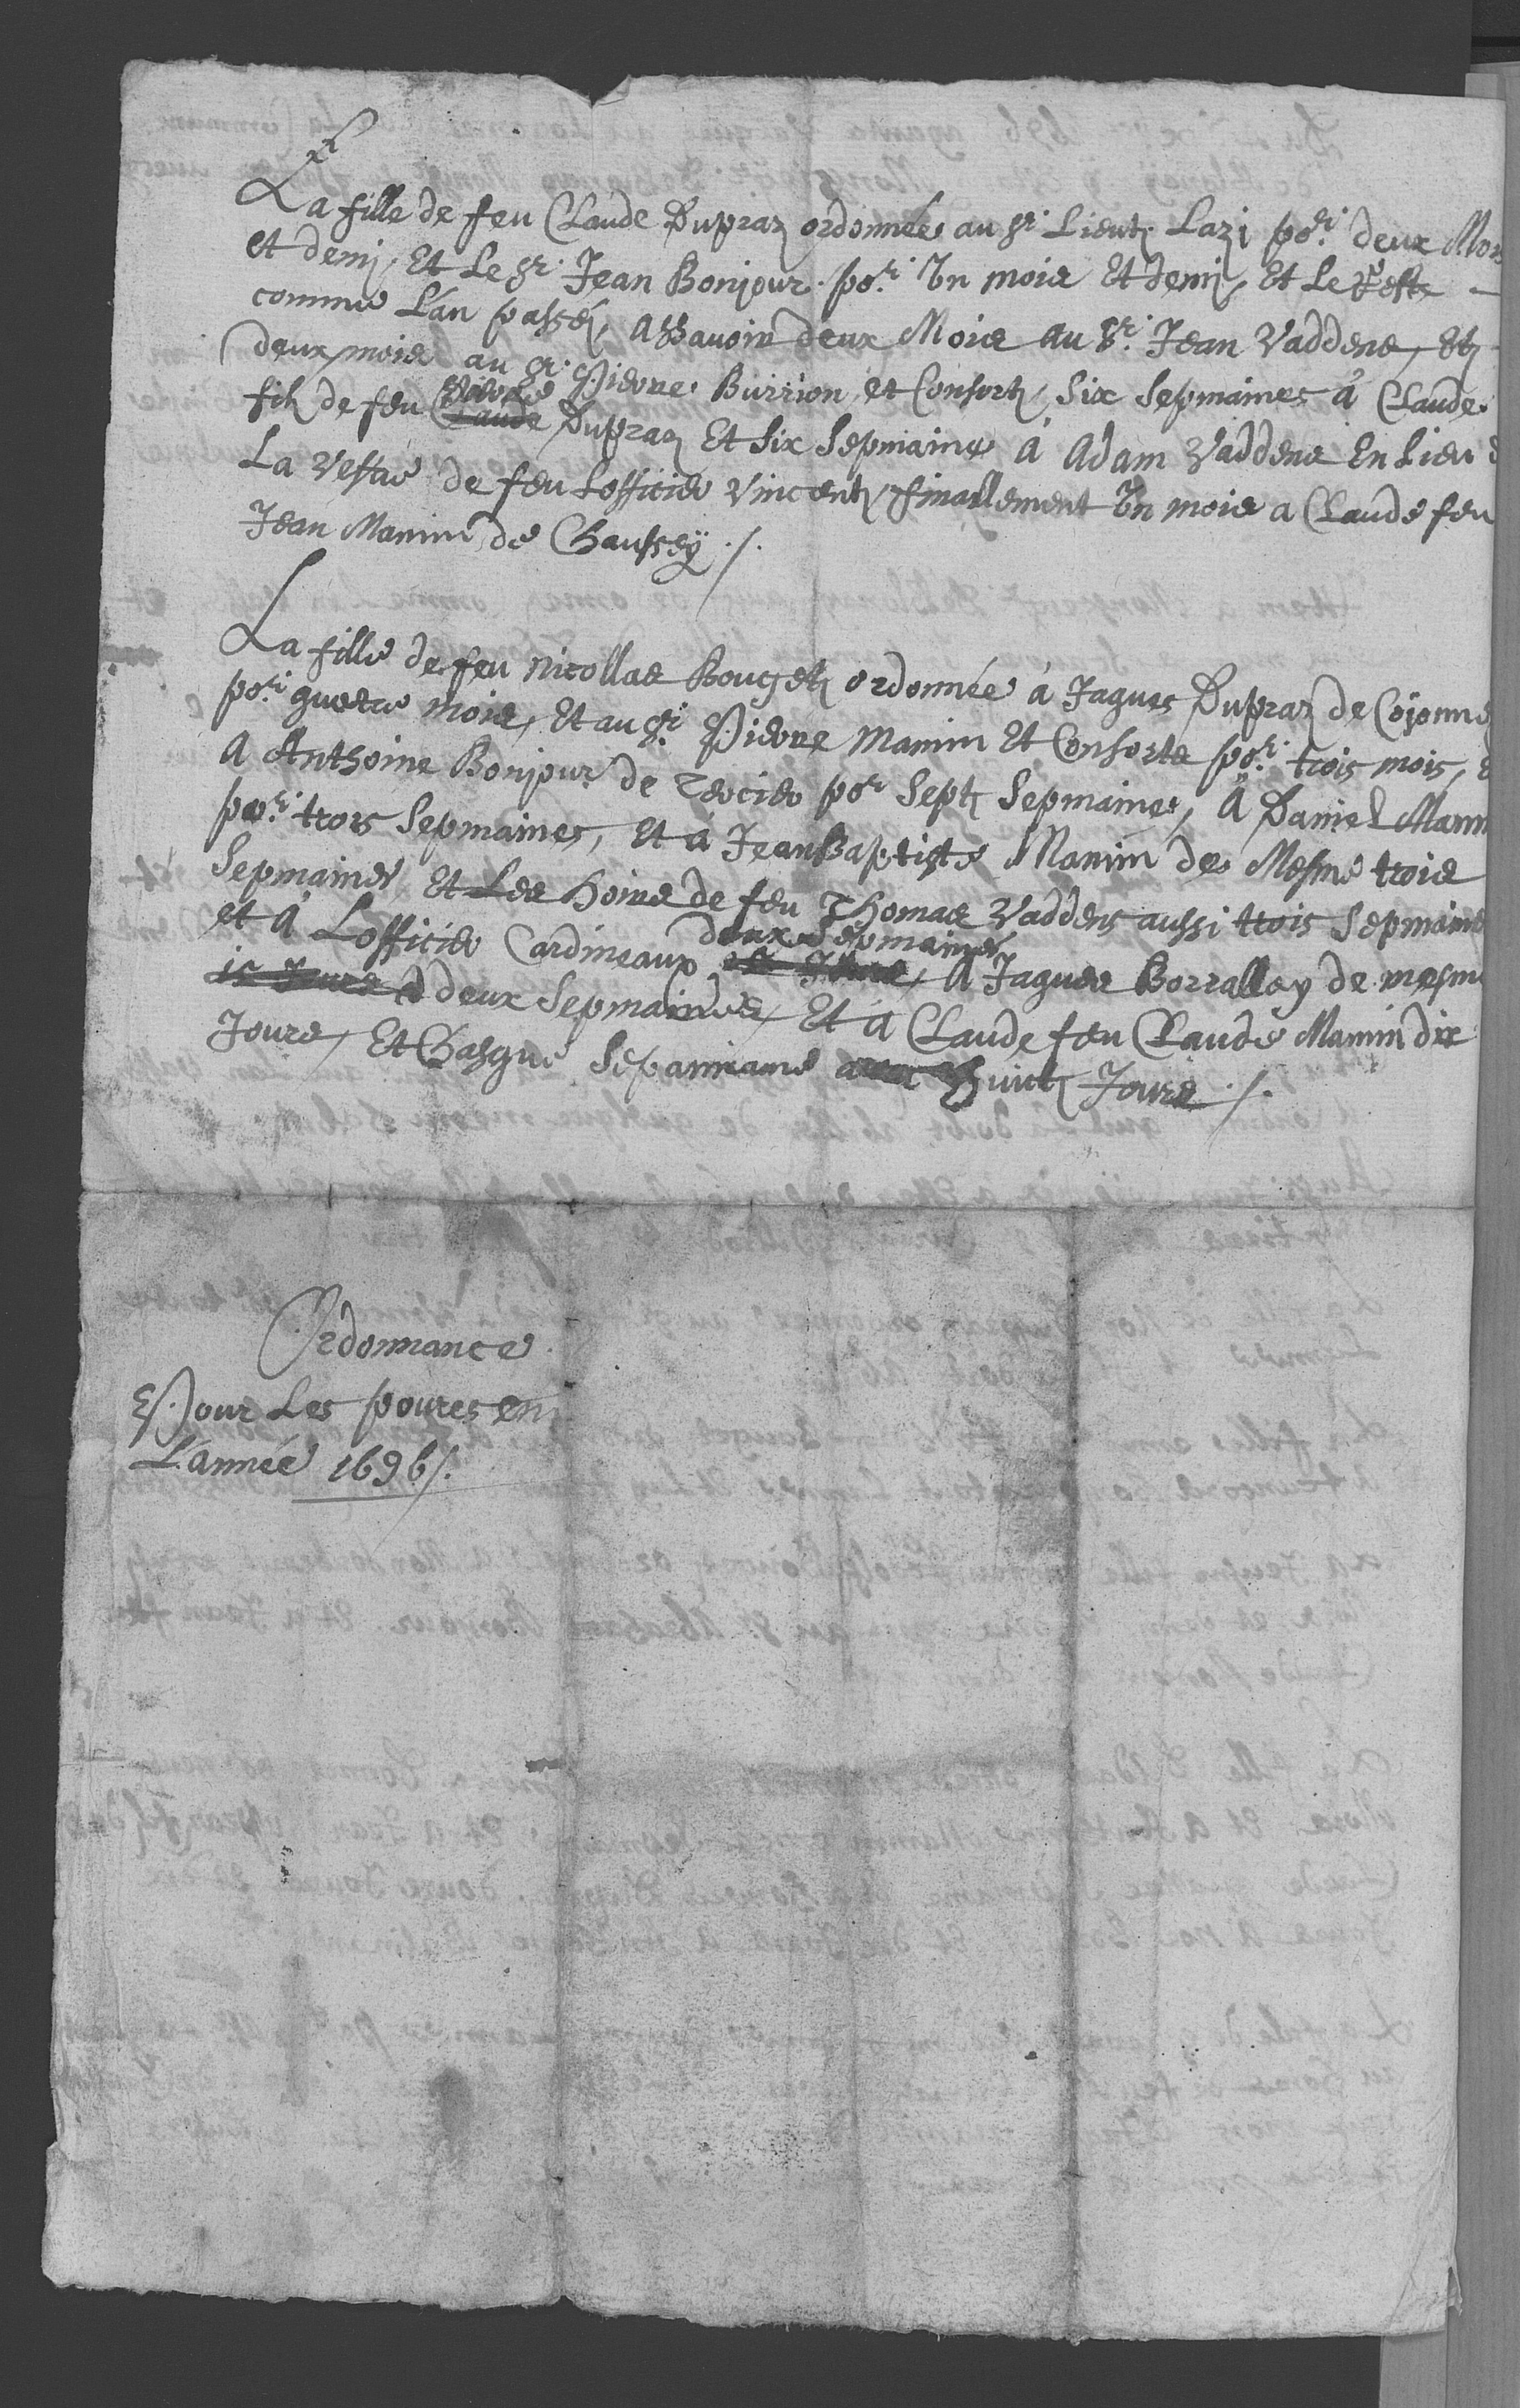 La fille de feu Claude Dupraz ordonnée au Sr. Lieut. Lazi por. deux Mois
et demi, Et Le Sr. Jean Bonjour por. Un mois Et demi, Et Le Reste
comme L'an passéz, assavoir deux Mois au Sr. Jean Vaddens, Et
deux mois au Sr. Pierre Burrion et Consortz, Six Sepmaines à Claude
filz de feu Claude Dupraz Et Six Sepmaine à Adam Vaddens En Lieu
La Vefue de feu Lofficier Vincentz, finallement Un mois a Claude feu
Jean Mamin de Chaussey ./.
La fille de feu Nicollas Bougetz ordonnée à Jaques Dupraz de
por. quattre mois, Et au Sr. Pierre Mamin Et Consorts por. trois mois,
A Anthoine Bonjour de Tercier por Septz Sepmaines, A Daniel Mamin
por. trois Sepmaines, Et à Jean Baptiste Mamin de Mesme trois
Sepmaines Et Les hoirs de feu Thomas Vaddens aussi trois Sepmaine
et à Lofficier Cardineaux deux Sepmaines, A Jaques Borralley de mesme
deux Sepmaines, Et à Claude feu Claude Mamin dix
Jours, Et Chasque Sepmaine huict Jours ./.
Ordonnance
Pour Les poures en
L'année 1696 ./.